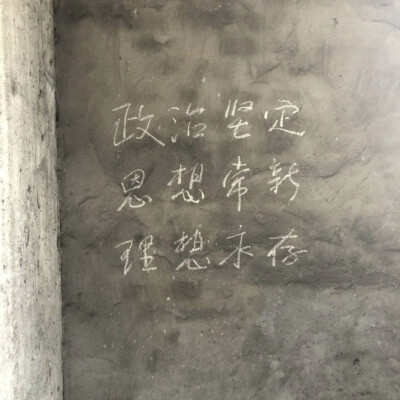 政治坚定
思想常新
理想永存